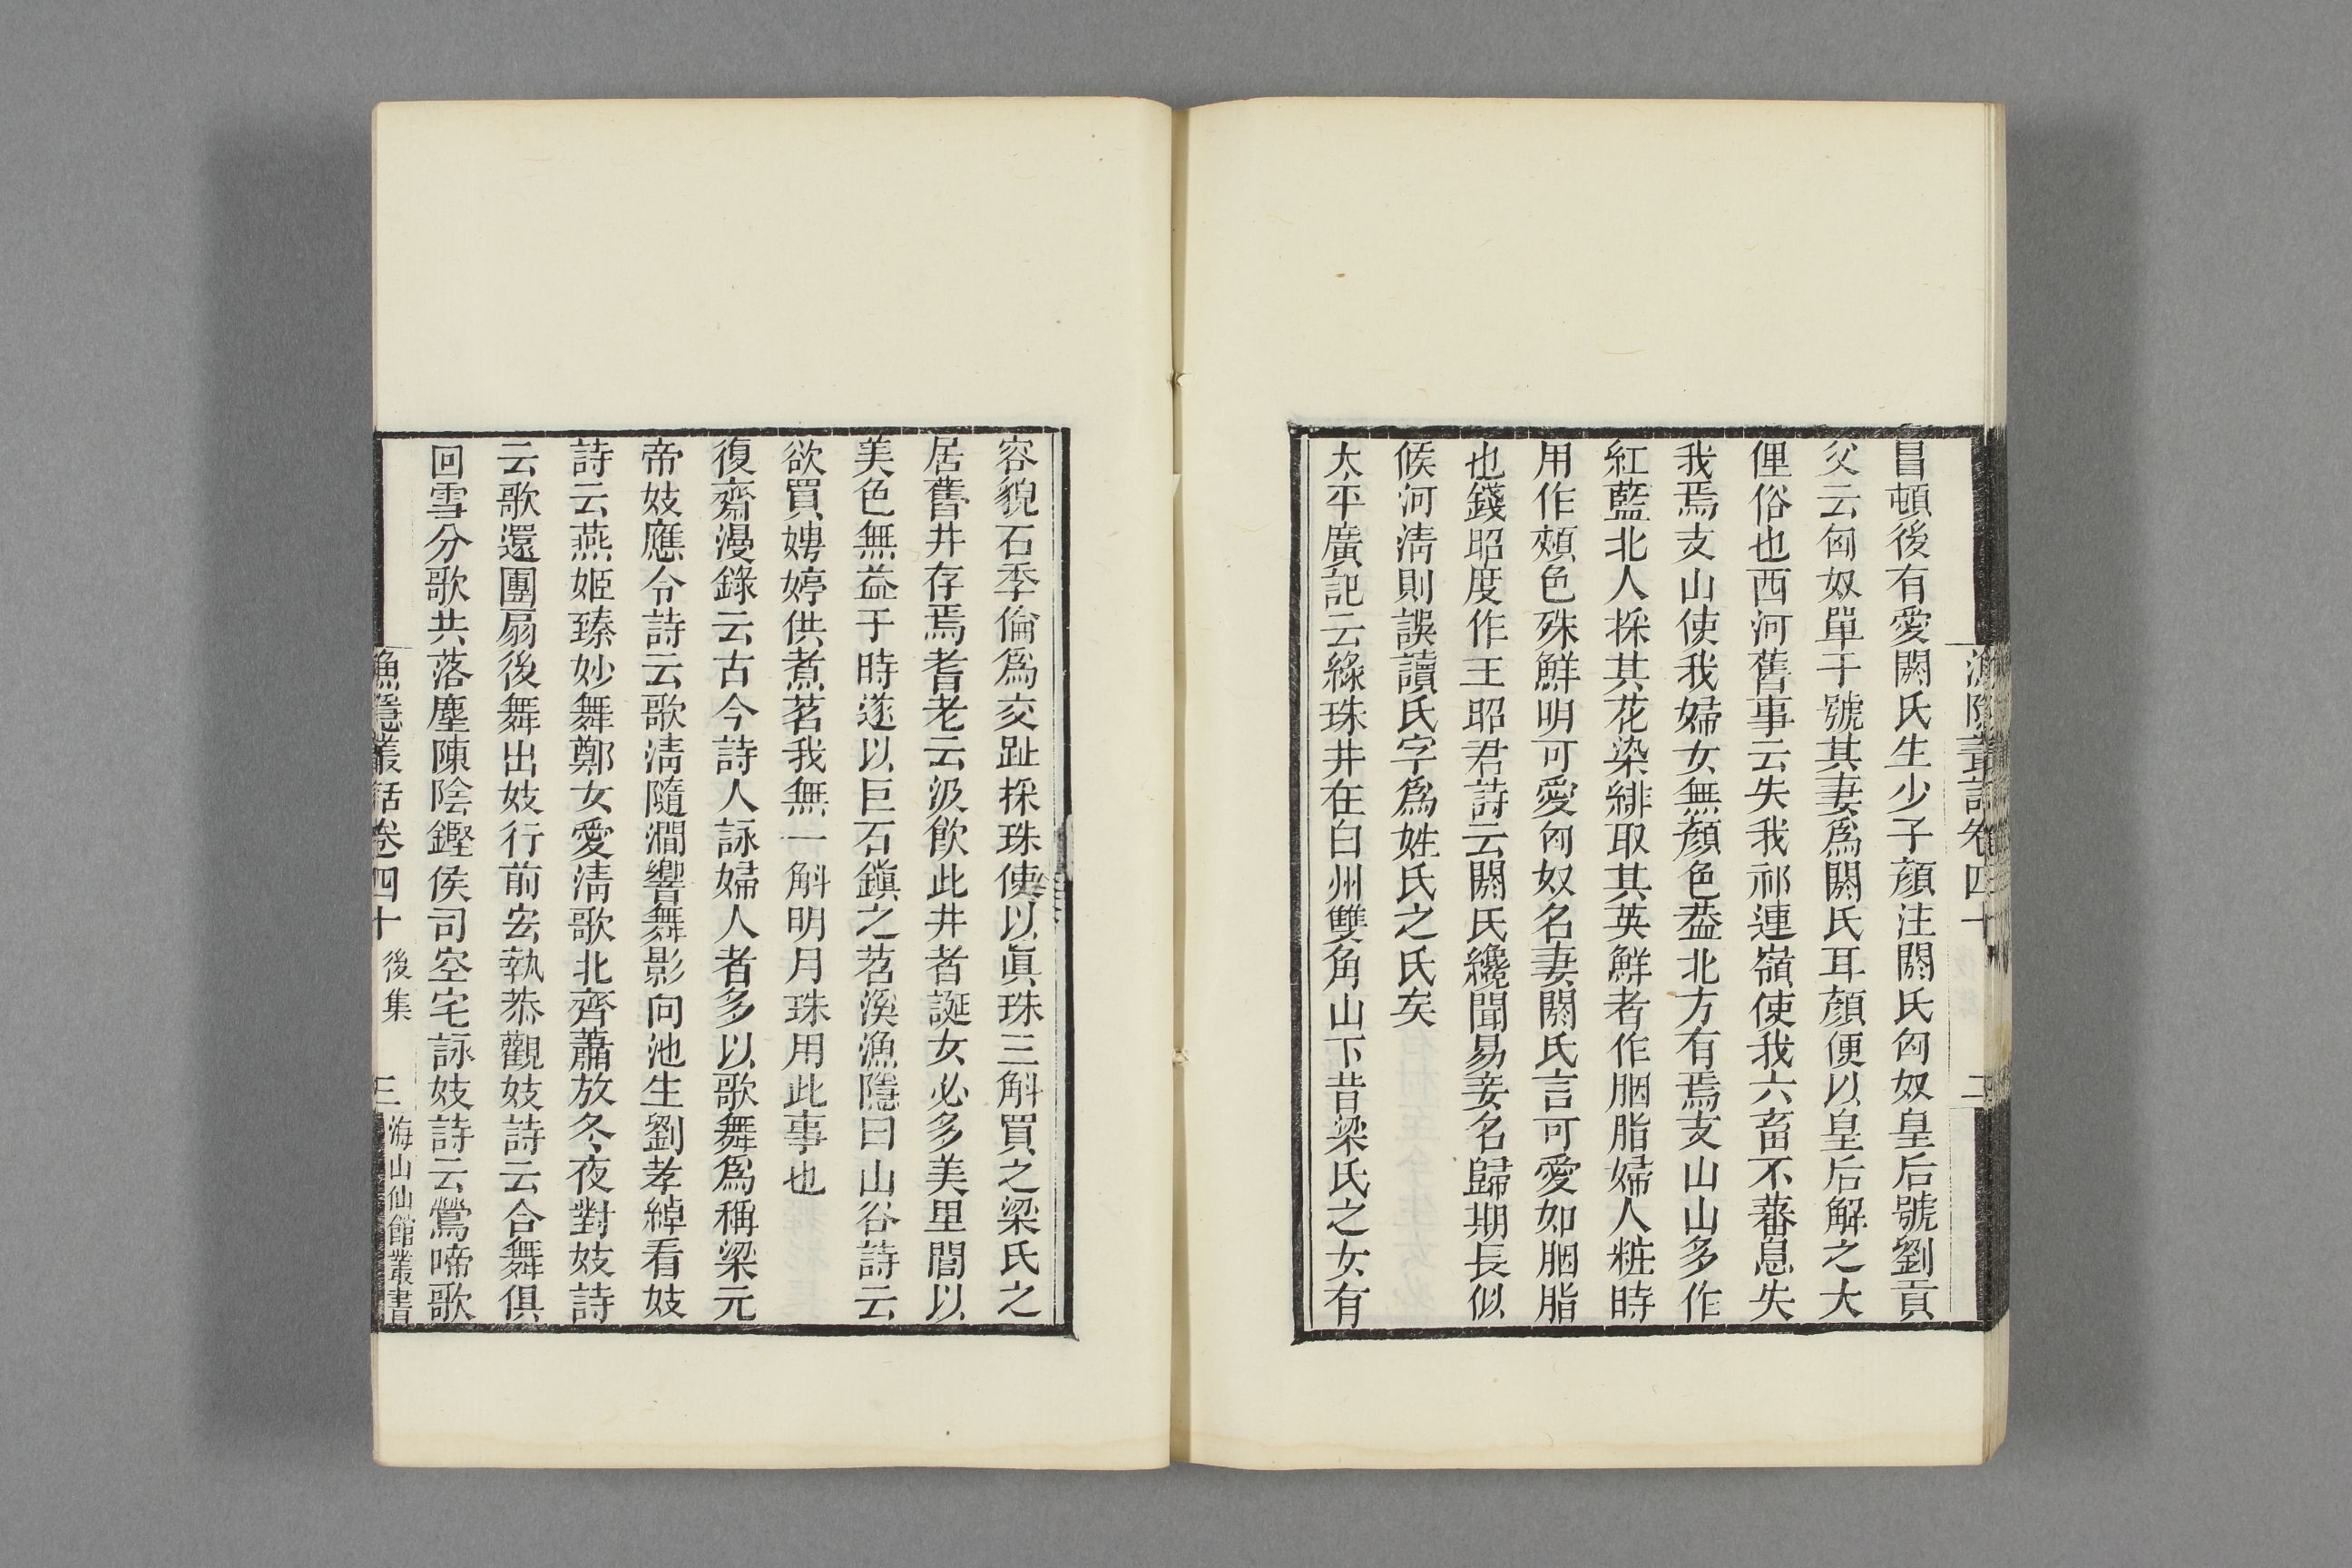 漁隱叢話卷四十
二
冒頓後有愛閼氏生少子顏注閼氏匈奴皇后號劉貢
父云匈奴單于號其妻爲閼氏耳顏便以皇后解之大
俚俗也西河舊事云失我祁連嶺使我六畜不蕃息失
我焉支山使我婦女無顏色葢北方有焉支山山多作
紅藍北人採其花染緋取其英鮮者作胭脂婦人粧時
用作頰色殊鮮明可愛匈奴名妻閼氏言可愛如胭脂
也錢昭度作王昭君詩云閼氏纔聞易妾名歸期長似
候河淸則誤讀氏字爲姓氏之氏矣
太平廣記云綠珠井在白州雙角山下昔梁氏之女有
容貌石季倫爲交趾採珠使以眞珠三斛買之梁氏之
居舊井存焉耆老云汲飮此井者誕女必多美里閭以
美色無益于時遂以巨石鎭之苕溪漁隱曰山谷詩云
欲買娉婷供煮茗我無一斛明月珠用此事也
復齋漫錄云古今詩人詠婦人者多以歌舞爲稱梁元
帝妓應令詩云歌淸隨澗響舞影向池生劉孝綽看妓
詩云燕姬臻妙舞鄭女愛淸歌北齊蕭放冬夜對妓詩
云歌還團扇後舞出妓行前宏執恭觀妓詩云合舞俱
回雪分歌共落塵陳陰鏗侯司空宅詠妓詩云鶯啼歌
漁隱叢話卷四十 後集
三 海山仙館叢書